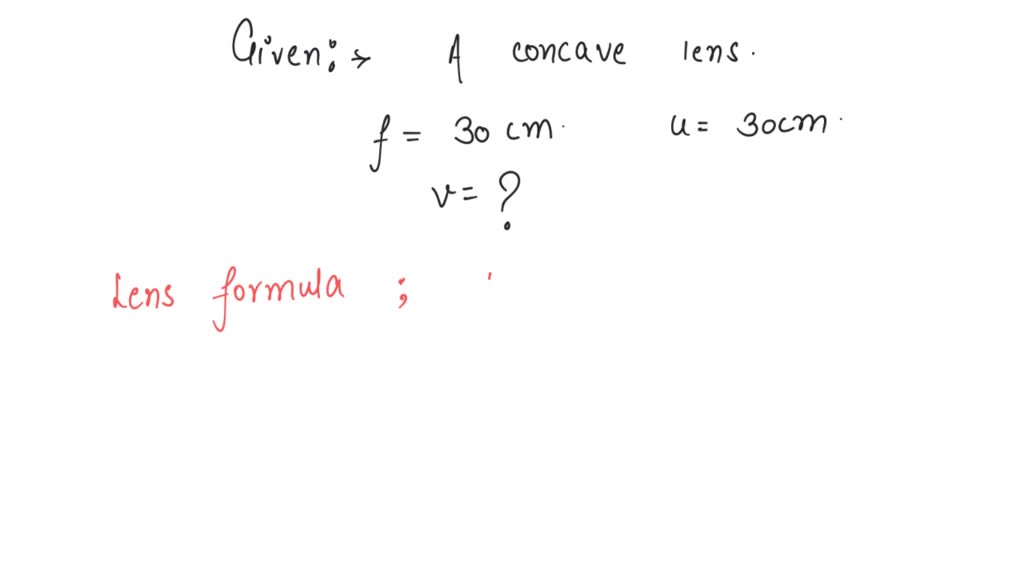 Given:→ A concave lens.
f = 30 cm. u = 30cm.
v = ?
Lens formula ;